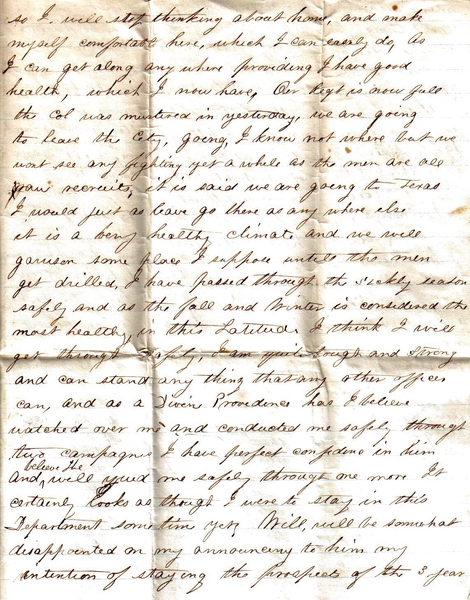 so I will stop thinking about home, and make
myself comfortabl here, which I can easely do, as
I can get along any where providing I have good
health, which I now have, Our Regt is now full
the Col was mustered in yesterday, we are going
to leave the City, going, I know not where but we
wont see any fighting yet a while as the men are all
raw recruits, it is said we are going to Texas
I would just as leave go there as any where else
it is a very healthy climate and we will
garrison some place I suppose untill the men
get drilled, I have passed through the sickly season
safely and as the fall and Winter is considered the
most healthy in this Latitude I think I will
get through safely, I am quite tough and strong
and can stand any thing that any other officer
can, and as a Divine Providence has I believe
watched over me and conducted me safely through
two campagnes I have perfect confidence in him
believe He
and, will guid me safely through one more It
certainly looks as though I were to stay in this
Department some time yet, Will, will be somewhat
disappointed on my announcing to him my
intention of staying the prospects of the 3 year